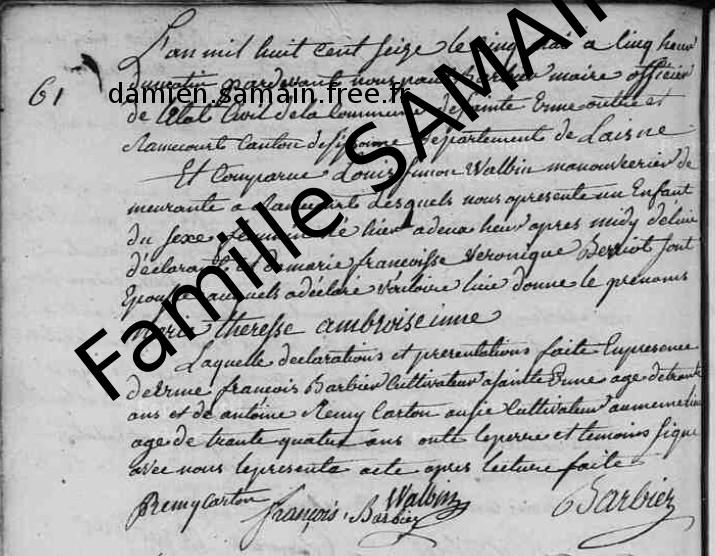 L'an mil huit cent seize le cinq mai a cinq heur
61
du matin pardevant nous paul Barbier maire officier
damien.samain.free.fr
de l'Etat Civil de la Commune de sainte Erme outre et
Ramecourt Canton de sissonne Departement de Laisne
Et Comparue Louis simon Walbin manouvrier de
meurante a Ramecourt Lesquels nous apresente un Enfant
du sexe feminin ne hier a deux heur apres midy de luie
d'eclarant et de marie francoisse Veronique Berriot sont
Epousse auquels adéclare vouloire luie donne le prenoms
marie theresse ambroiseinne
Laquelle declarations et presentations faite Enpresence
de Erme francois Barbier Cultivateur a sainte Erme age de trante
ans et de antoine Remy Carton ausie Cultivateur aumeme lieu
age de trante quatre ans onts leperre et temoins signe
avec nous lepresents acte apres lecture faite
Remy Carton
francois Barbiez
Walbin
Barbiez
Famille SAMAIN